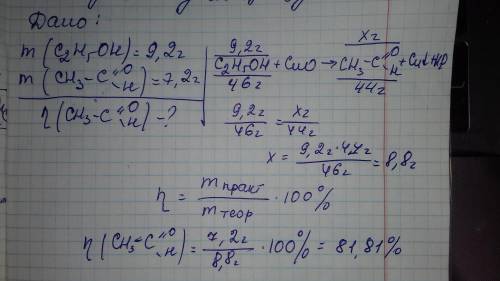 Дано:
m(C₂H₅OH)=9,2г
m(CH₃-C(=O)H)=7,2г
η(CH₃-C(=O)H)-?
9,2г xг
C₂H₅OH+CuO→CH₃-C(=O)H+Cu+H₂O
46г 44г
9,2г/46г=xг/44г
x=9,2г·44г/46г=8,8г
η=mпракт/mтеор·100%
η(CH₃-C(=O)H)=7,2г/8,8г·100%=81,81%